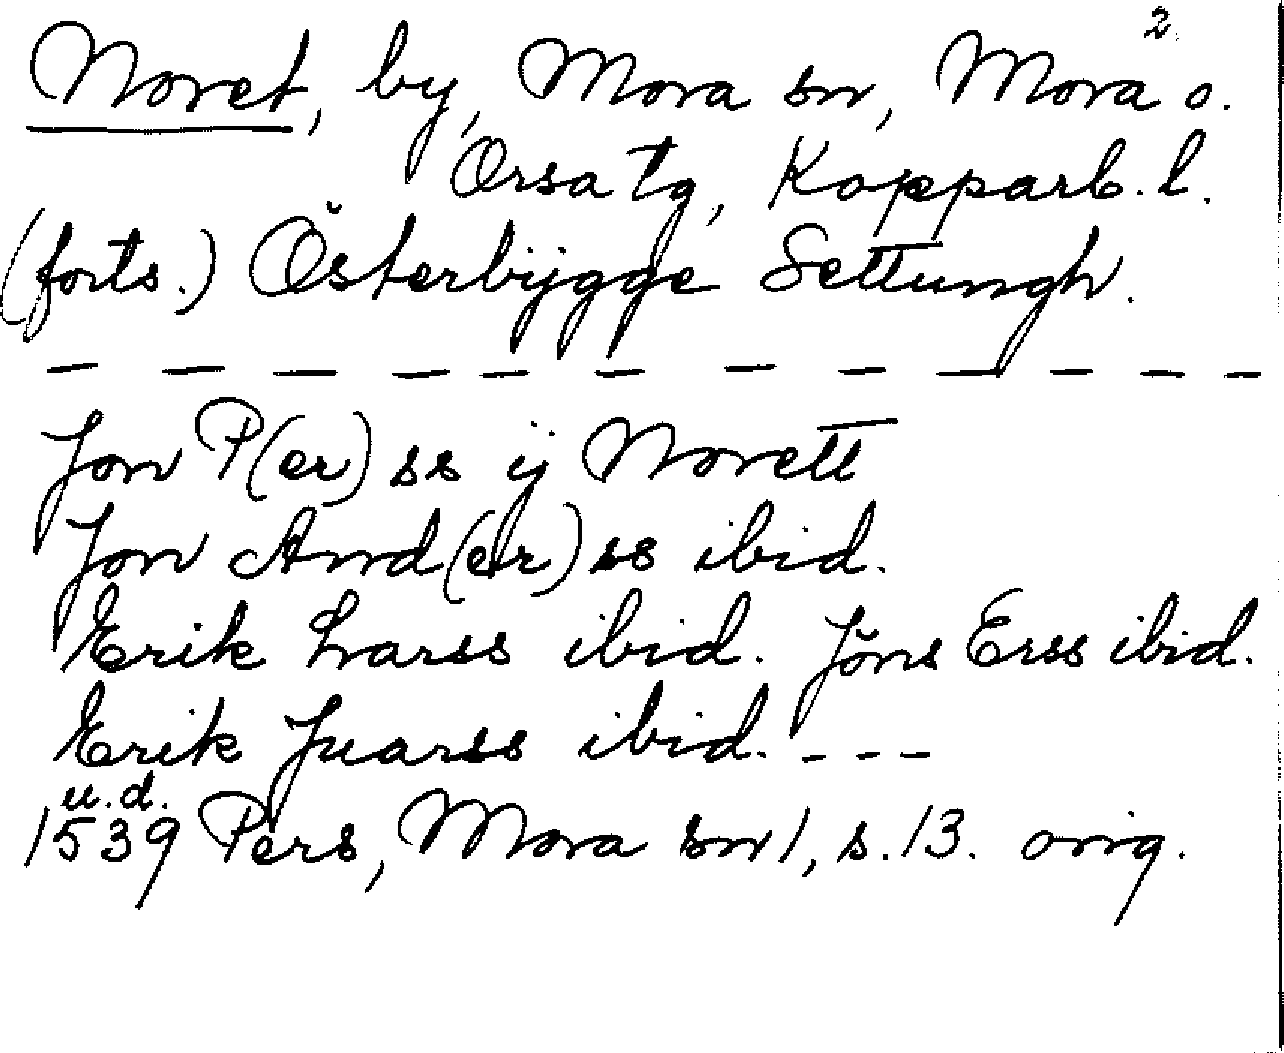 2.
Noret, by, Mora sn, Mora o.
Orsa tg, Kopparb. l.
(forts.) Österbygge Settungh.
— — — — — — — — — — — —
Jon P(er)ss ij Norett
Jon And(er)ss ibid.
Erik Larss ibid. Jöns Erss ibid.
Erik Juarss ibid. - - -
u.d.
1539 Pers, Mora sn 1, s. 13. orig.